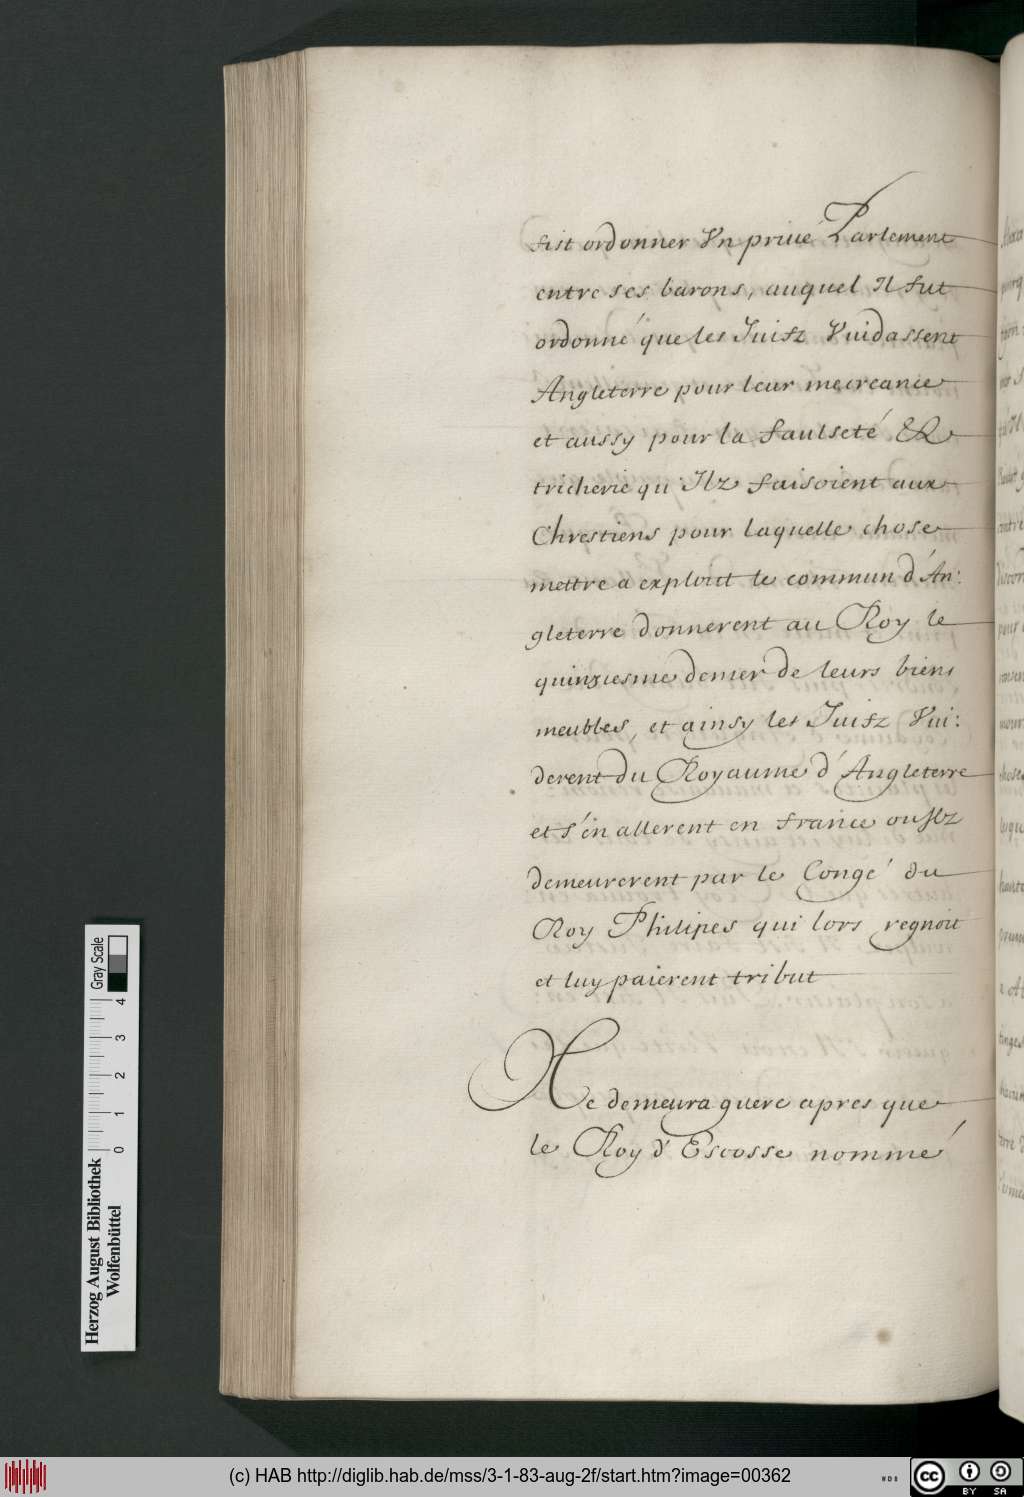 fist ordonner Vn priué Parlement
entre ses barons, auquel Il fut
ordonné que les Juifz Vuidassent
Angleterre pour leur mecreance
et aussy pour la faulseté &
tricherie qu'Ilz faisoient aux
Chrestiens pour laquelle chose
mettre a exploict le commun d'An:
gleterre donnerent au Roy le
quinziesme denier de leurs biens
meubles, et ainsy les Juifz Vui:
derent du Royaume d'Angleterre
et s'en allerent en france ou Ilz
demeurerent par le Congé du
Roy Philipes qui lors regnoit
et luy paierent tribut
Ne demeura guere apres que
le Roy d'Escosse nommé
Herzog August Bibliothek
Wolfenbüttel
0 1 2 3 4
Gray Scale
(c) HAB http://diglib.hab.de/mss/3-1-83-aug-2f/start.htm?image=00362
cc BY SA